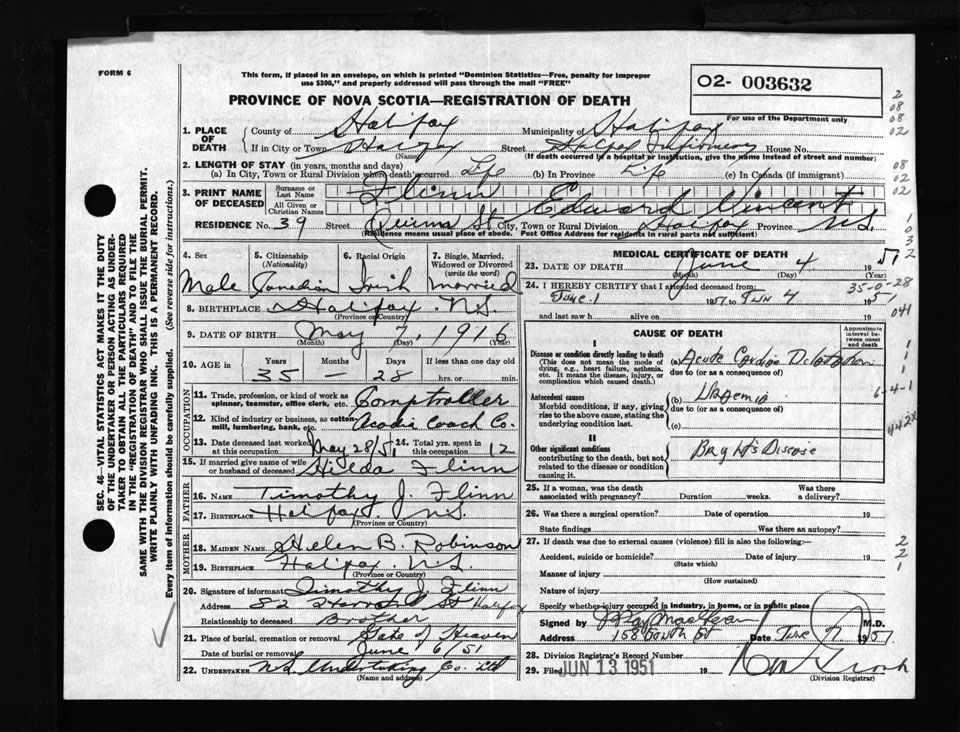 FORM 6
This form, if placed in an envelope, on which is printed "Dominion Statistics—Free, penalty for improper
use $300," and properly addressed will pass through the mail "FREE"
O2- 003632
For use of the Department only
PROVINCE OF NOVA SCOTIA—REGISTRATION OF DEATH
1. PLACE OF DEATH
County of Halifax Municipality of Halifax
If in City or Town Halifax Street Halifax Infirmary House No.
(Name) (If death occurred in a hospital or institution, give the name instead of street and number)
2. LENGTH OF STAY (in years, months and days)
(a) In City, Town or Rural Division where death occurred Life (b) In Province Life (c) In Canada (if immigrant)
3. PRINT NAME OF DECEASED
Surname or Last Name Flinn
All Given or Christian Names Edward Vincent
RESIDENCE No. 39 Street St City, Town or Rural Division Province N.S.
Residence means usual place of abode. Post Office Address for residents in rural parts not sufficient)
4. Sex 5. Citizenship (Nationality) 6. Racial Origin 7. Single, Married, Widowed or Divorced (write the word)
Male Canadian Irish married
8. BIRTHPLACE Halifax N.S.
(Province or Country)
9. DATE OF BIRTH May 7, 1916
(Month) (Day)
10. AGE in Years Months Days If less than one day old
35 - 28 hrs. or min.
OCCUPATION
11. Trade, profession, or kind of work as spinner, teamster, office clerk, etc. Comptroller
12. Kind of industry or business, as cotton mill, lumbering, bank, etc. Acadia Coach Co.
13. Date deceased last worked at this occupation May 28/51 14. Total yrs. spent in this occupation 12
15. If married give name of wife or husband of deceased Hilda Flinn
FATHER
16. NAME Timothy J. Flinn
17. BIRTHPLACE Halifax N.S.
(Province or Country)
MOTHER
18. MAIDEN NAME Helen B. Robinson
19. BIRTHPLACE Halifax N.S.
(Province or Country)
20. Signature of informant Timothy J Flinn
Address 82 St Halifax
Relationship to deceased Brother
21. Place of burial, cremation or removal Gate of Heaven
Date of burial or removal June 6/51
22. UNDERTAKER N.S. Undertaking Co. Ltd
(Name and address)
MEDICAL CERTIFICATE OF DEATH
23. DATE OF DEATH June 4 1951
(Month) (Day)
24. I HEREBY CERTIFY that I attended deceased from:
June 1 1951 to June 4 1951
and last saw h alive on 19
35-0-28
CAUSE OF DEATH
Approximate interval between onset and death
I
Disease or condition directly leading to death
(This does not mean the mode of dying, e.g., heart failure, asthenia, etc. It means the disease, injury, or complication which caused death.)
(a) Acute Cardiac Dilatation
due to (or as a consequence of)
Antecedent causes
Morbid conditions, if any, giving rise to the above cause, stating the underlying condition last.
(b) Uraemia
due to (or as a consequence of)
(c)
II
Other significant conditions contributing to the death, but not related to the disease or condition causing it.
Bright's Disease
25. If a woman, was the death associated with pregnancy? Duration weeks. Was there a delivery?
26. Was there a surgical operation? Date of operation 19
State findings Was there an autopsy?
27. If death was due to external causes (violence) fill in also the following:—
Accident, suicide or homicide? Date of injury 19
(State which)
Manner of injury
(How sustained)
Nature of injury
Specify whether injury occurred in industry, in home, or in public place
Signed by M.D.
Address 158 South St Date June 7 1951
28. Division Registrar's Record Number
29. Filed JUN 13 1951 19
(Division Registrar)
SEC. 46—VITAL STATISTICS ACT MAKES IT THE DUTY
OF THE UNDERTAKER OR PERSON ACTING AS UNDER-
TAKER TO OBTAIN ALL THE PARTICULARS REQUIRED
IN THE "REGISTRATION OF DEATH" AND TO FILE THE
SAME WITH THE DIVISION REGISTRAR WHO SHALL ISSUE THE BURIAL PERMIT.
WRITE PLAINLY WITH UNFADING INK. THIS IS A PERMANENT RECORD.
Every item of information should be carefully supplied. (See reverse side for instructions.)
2
08
08
02
08
02
02
1
0
3
2
041
6-4-1
442X
2
2
1